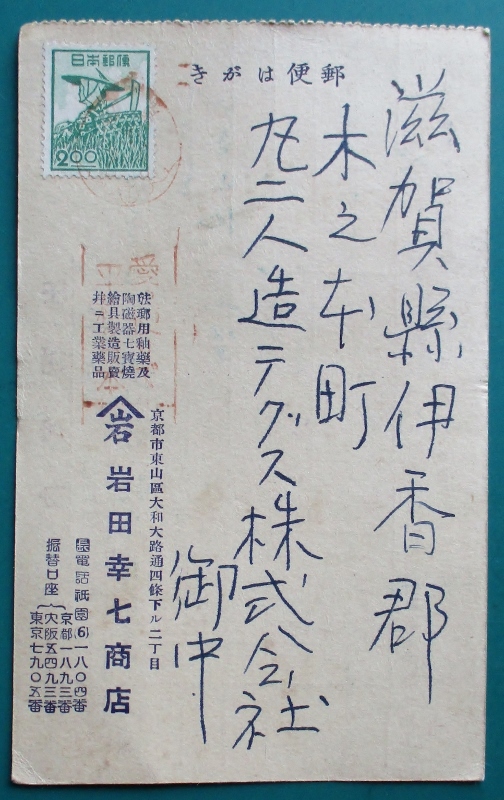 郵便はがき
日本郵便
2.00
滋賀縣伊香郡
木之本町
丸二人造テグス株式会社
御中
琺瑯用釉藥及
陶磁器七寳燒
繪具製造販賣
并ニ工業藥品
岩
京都市東山區大和大路通四條下ル二丁目
岩田幸七商店
電話祇園(6)一八〇四番
振替口座
京都一八九三番
大阪五四九三番
東京七九〇五番